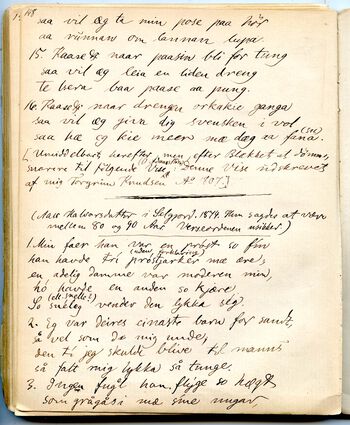 148
saa vil æg ta min pose paa hör
aa rünnaw om lannan lupa.
15. Kaasedº naar paasin bli for tung
saa vil æg leia en liden dreng
te bera baa paase aa pung.
16. Kaasedº naar drengin orkakie ganga
saa vil æg giva dig svensken i vol
saa hæ eg kie meer mæ dæg aa fana. (sic)
[Umiddelbart herefter, men efter Blekket at dømme,
snarere til følgende Vise: Denne Vise udskrevet
af mig Torgrim Knudsen Aº 707.]
(Aas Halvorsdatter i Selgjord. 1879. Hun sagdes at være
mellem 80 og 90 Aar. Versordenen usikker)
1. Min faer han var en pröst so fin
han havde tri pröstjarker mæ ære,
(uden forklaring)
en adelig damme var moderen min,
hó havde en anden so kjære
(elt. snelle?)
So snöleg vender den lykka seg.
2. Eg var deires einaste barn for sandt,
så vel som do mig unde,
den ti jeg skulde blive til manns
så falt mig lykka så tunge.
3. Ingen fugl han flyge so hægt
som grågåsi mæ sine ungar,